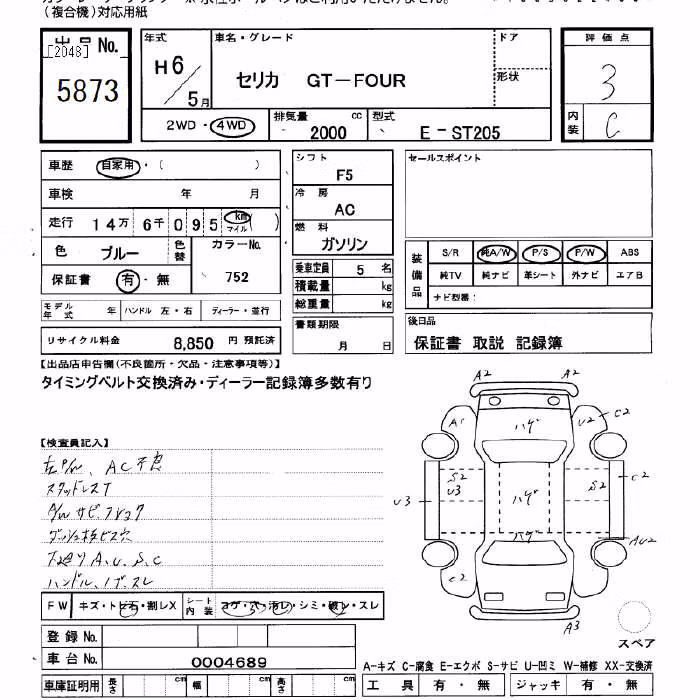 (複合機)対応用紙
出品No.
[2048]
5873
年式
H6/5月
車名・グレード
セリカ GT-FOUR
ドア
形状
評価点
3
内装
C
2WD・4WD
排気量 cc
2000
型式
E-ST205
車歴 自家用・( )
車検 年 月
走行 14万 6千 095 km マイル ( )
色 ブルー 色替 カラーNo. 752
保証書 有・無
モデル年式 年 ハンドル 左・右 ディーラー・並行
リサイクル料金 8,850 円 預託済
シフト
F5
冷房
AC
燃料
ガソリン
乗車定員 5 名
積載量 kg
総重量 kg
書類期限
月 日
セールスポイント
装備品
S/R 純A/W P/S P/W ABS
純TV 純ナビ 革シート 外ナビ エアB
ナビ型番:
後日品
保証書 取説 記録簿
【出品店申告欄(不良箇所・欠品・注意事項等)】
タイミングベルト交換済み・ディーラー記録簿多数有り
【検査員記入】
AC不良
スタッドレスT
A/W サビ
下廻り A.U.S.C
ハンドル、ノブ、スレ
FW キズ・トビ石・割レX シート内装 コゲ・穴・汚レ・シミ・破レ・スレ
登録No.
車台No. 0004689
車庫証明用 長さ cm 幅 cm 高さ cm
A2 A2
A1 ハゲ U2 C2
S2 U3 U3 ハゲ S2 S2 C2
AU2
C2
A3
スペア
A-キズ C-腐食 E-エクボ S-サビ U-凹ミ W-補修 XX-交換済
工具 有・無 ジャッキ 有・無